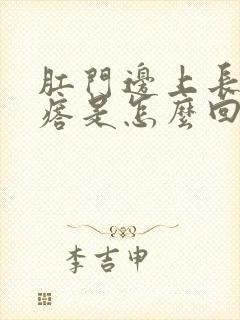 肛門邊上長
痞是怎麼回
李吉申